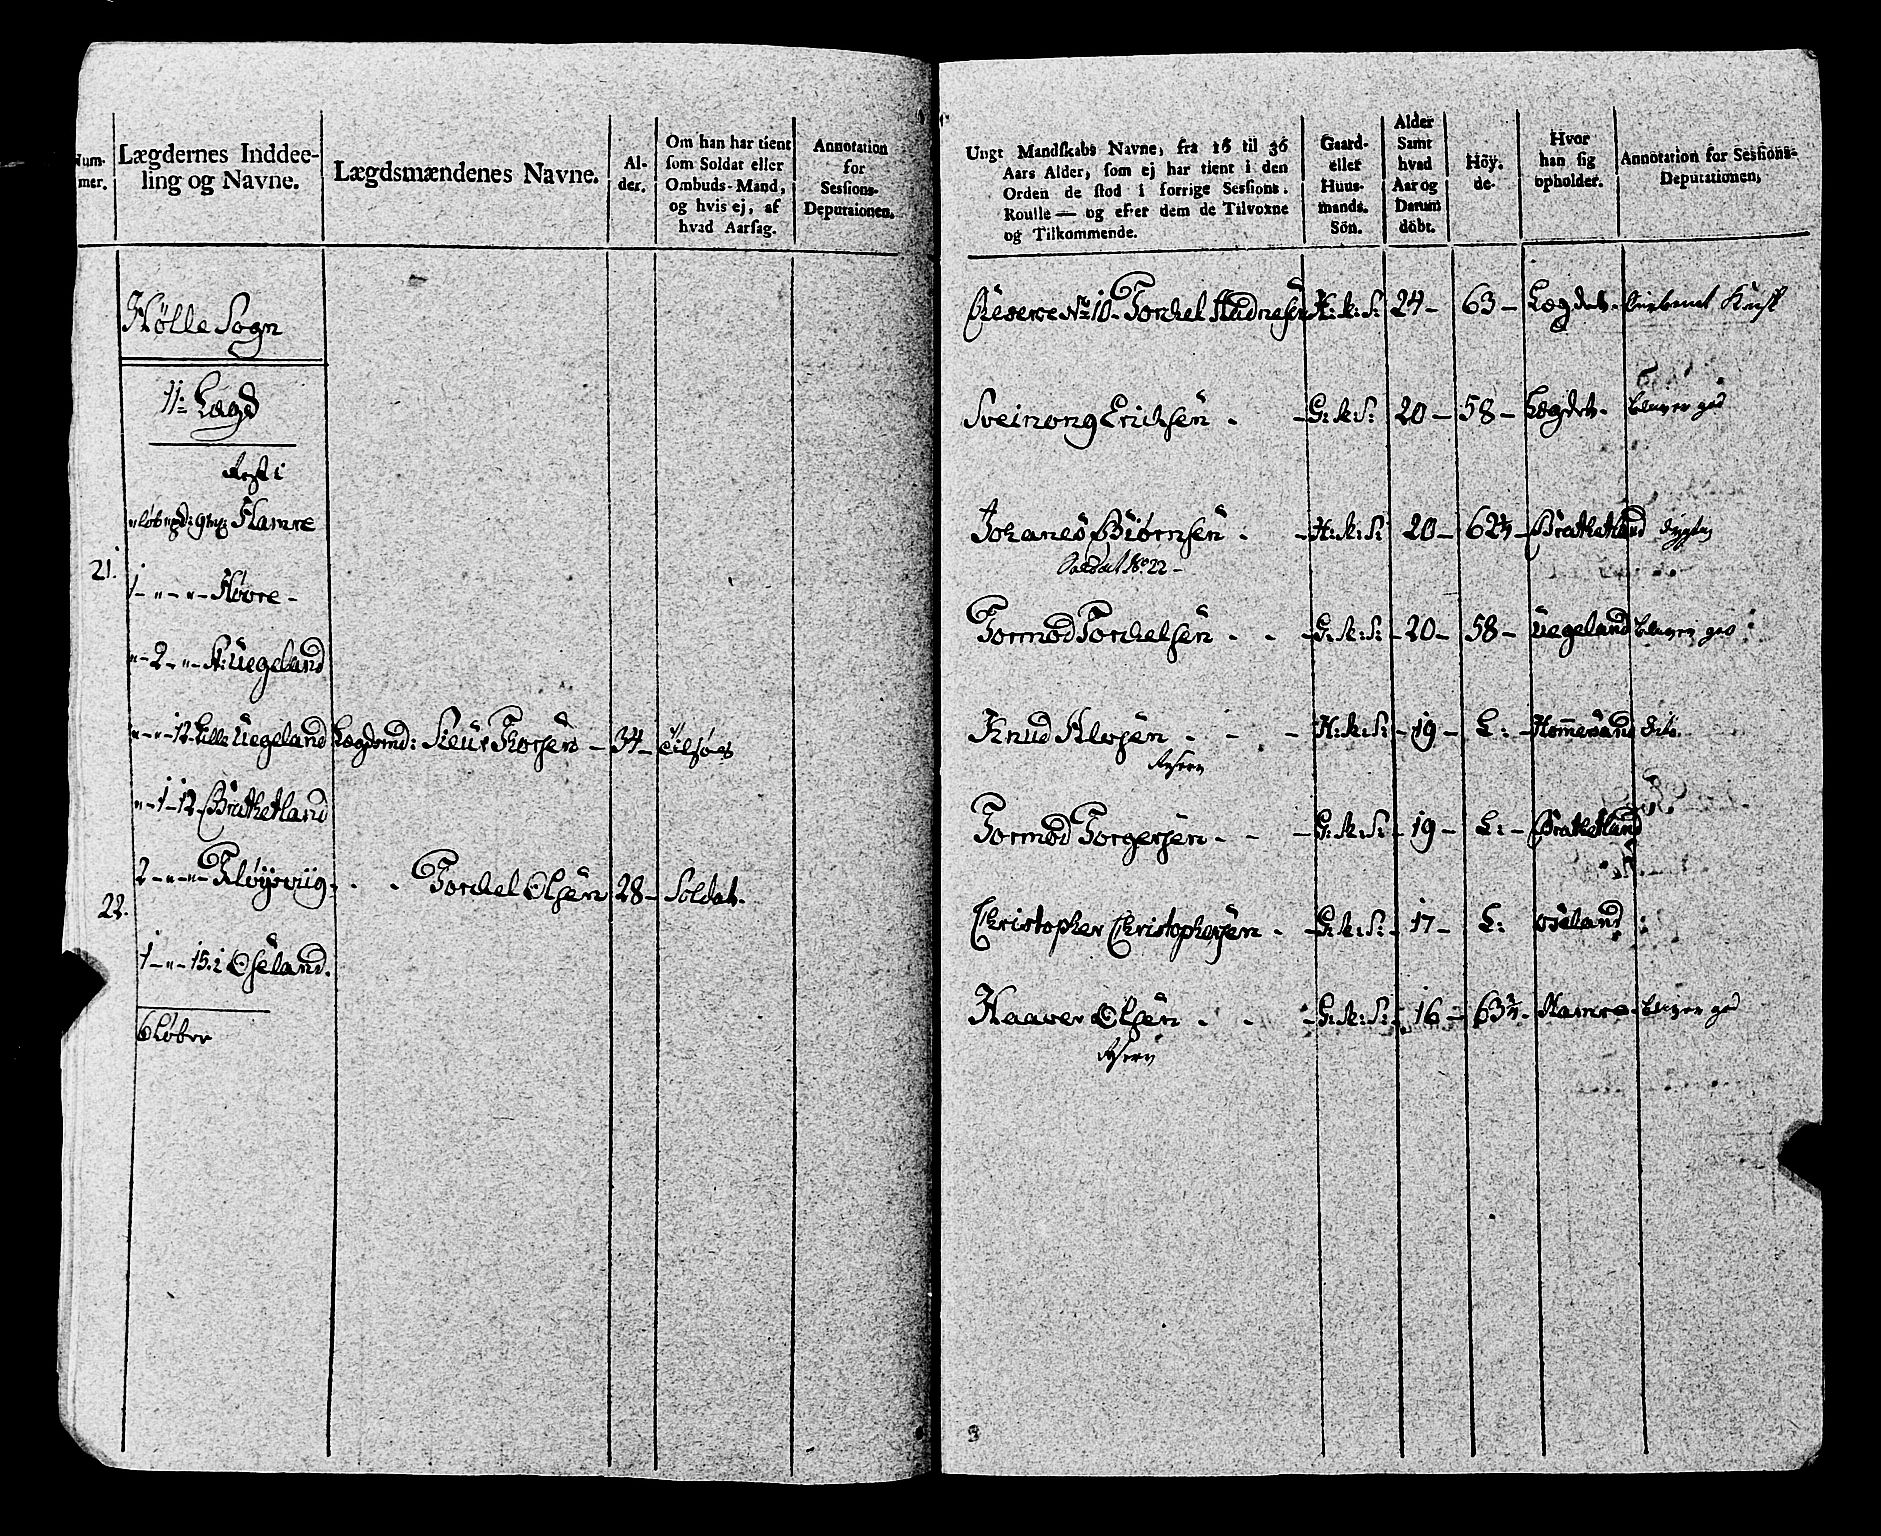 Num-
mer.
Lægdernes Inddee-
ling og Navne.
Lægdsmændenes Navne.
Al-
der.
Om han har tient
som Soldat eller
Ombuds-Mand,
og hvis ej, af
hvad Aarsag.
Annotation
for
Sessions-
Deputaionen.
Hølle Sogn
11: Lægd
Rest i
Hamre
21.
1 - " - " - Høvre -
" - 2 - " - N: Uegeland
" - " - 12 Lille Uegeland Lægdsmd: Sieur Thorsen - 34 -
" - 1 - 12 Brathetland
2 - " - " - Fløysviig - - Torchel Olsen 28 - Soldat.
22.
1 - " - 15. i Øseland.
6 Løber
Ungt Mandskabs Navne, fra 16 til 36
Aars Alder, som ej har tient i den
Orden de stod i forrige Sessions-
Roulle — og efter dem de Tilvoxne
og Tilkommende.
Gaard-
eller
Huus-
mands-
Sön.
Alder
Samt
hvad
Aar og
Datum
döbt.
Höy-
de.
Hvor
han sig
opholder.
Annotation for Sessions-
Deputationen,
Reserve No 10 - Torchel Gudnesen H: M: S: 24 - 63 - Lægdet.
Sveinong Erichsen - - G: M: S: 20 - 58 - Lægdet.
Johanes Biørnsen - - H: M: S: 20 - 62 1/2 - Brathetland dygtig
Soldat No 22 -
Tormod Torchelsen - - G: M: S: - 20 - 58 - Uegeland
Knud Alvsen - - - H: M: S: - 19 - L: - Hommesund dito.
Reserv
Tormod Torgersen - - - G: M: S: - 19 - L: - Brathetland
Christopher Christophersen - - G: M: S: - 17 - L: Øseland
Haaver Olsen - - - G: M: S: - 16 - 63 1/2 - Hamre -
Reserv
3